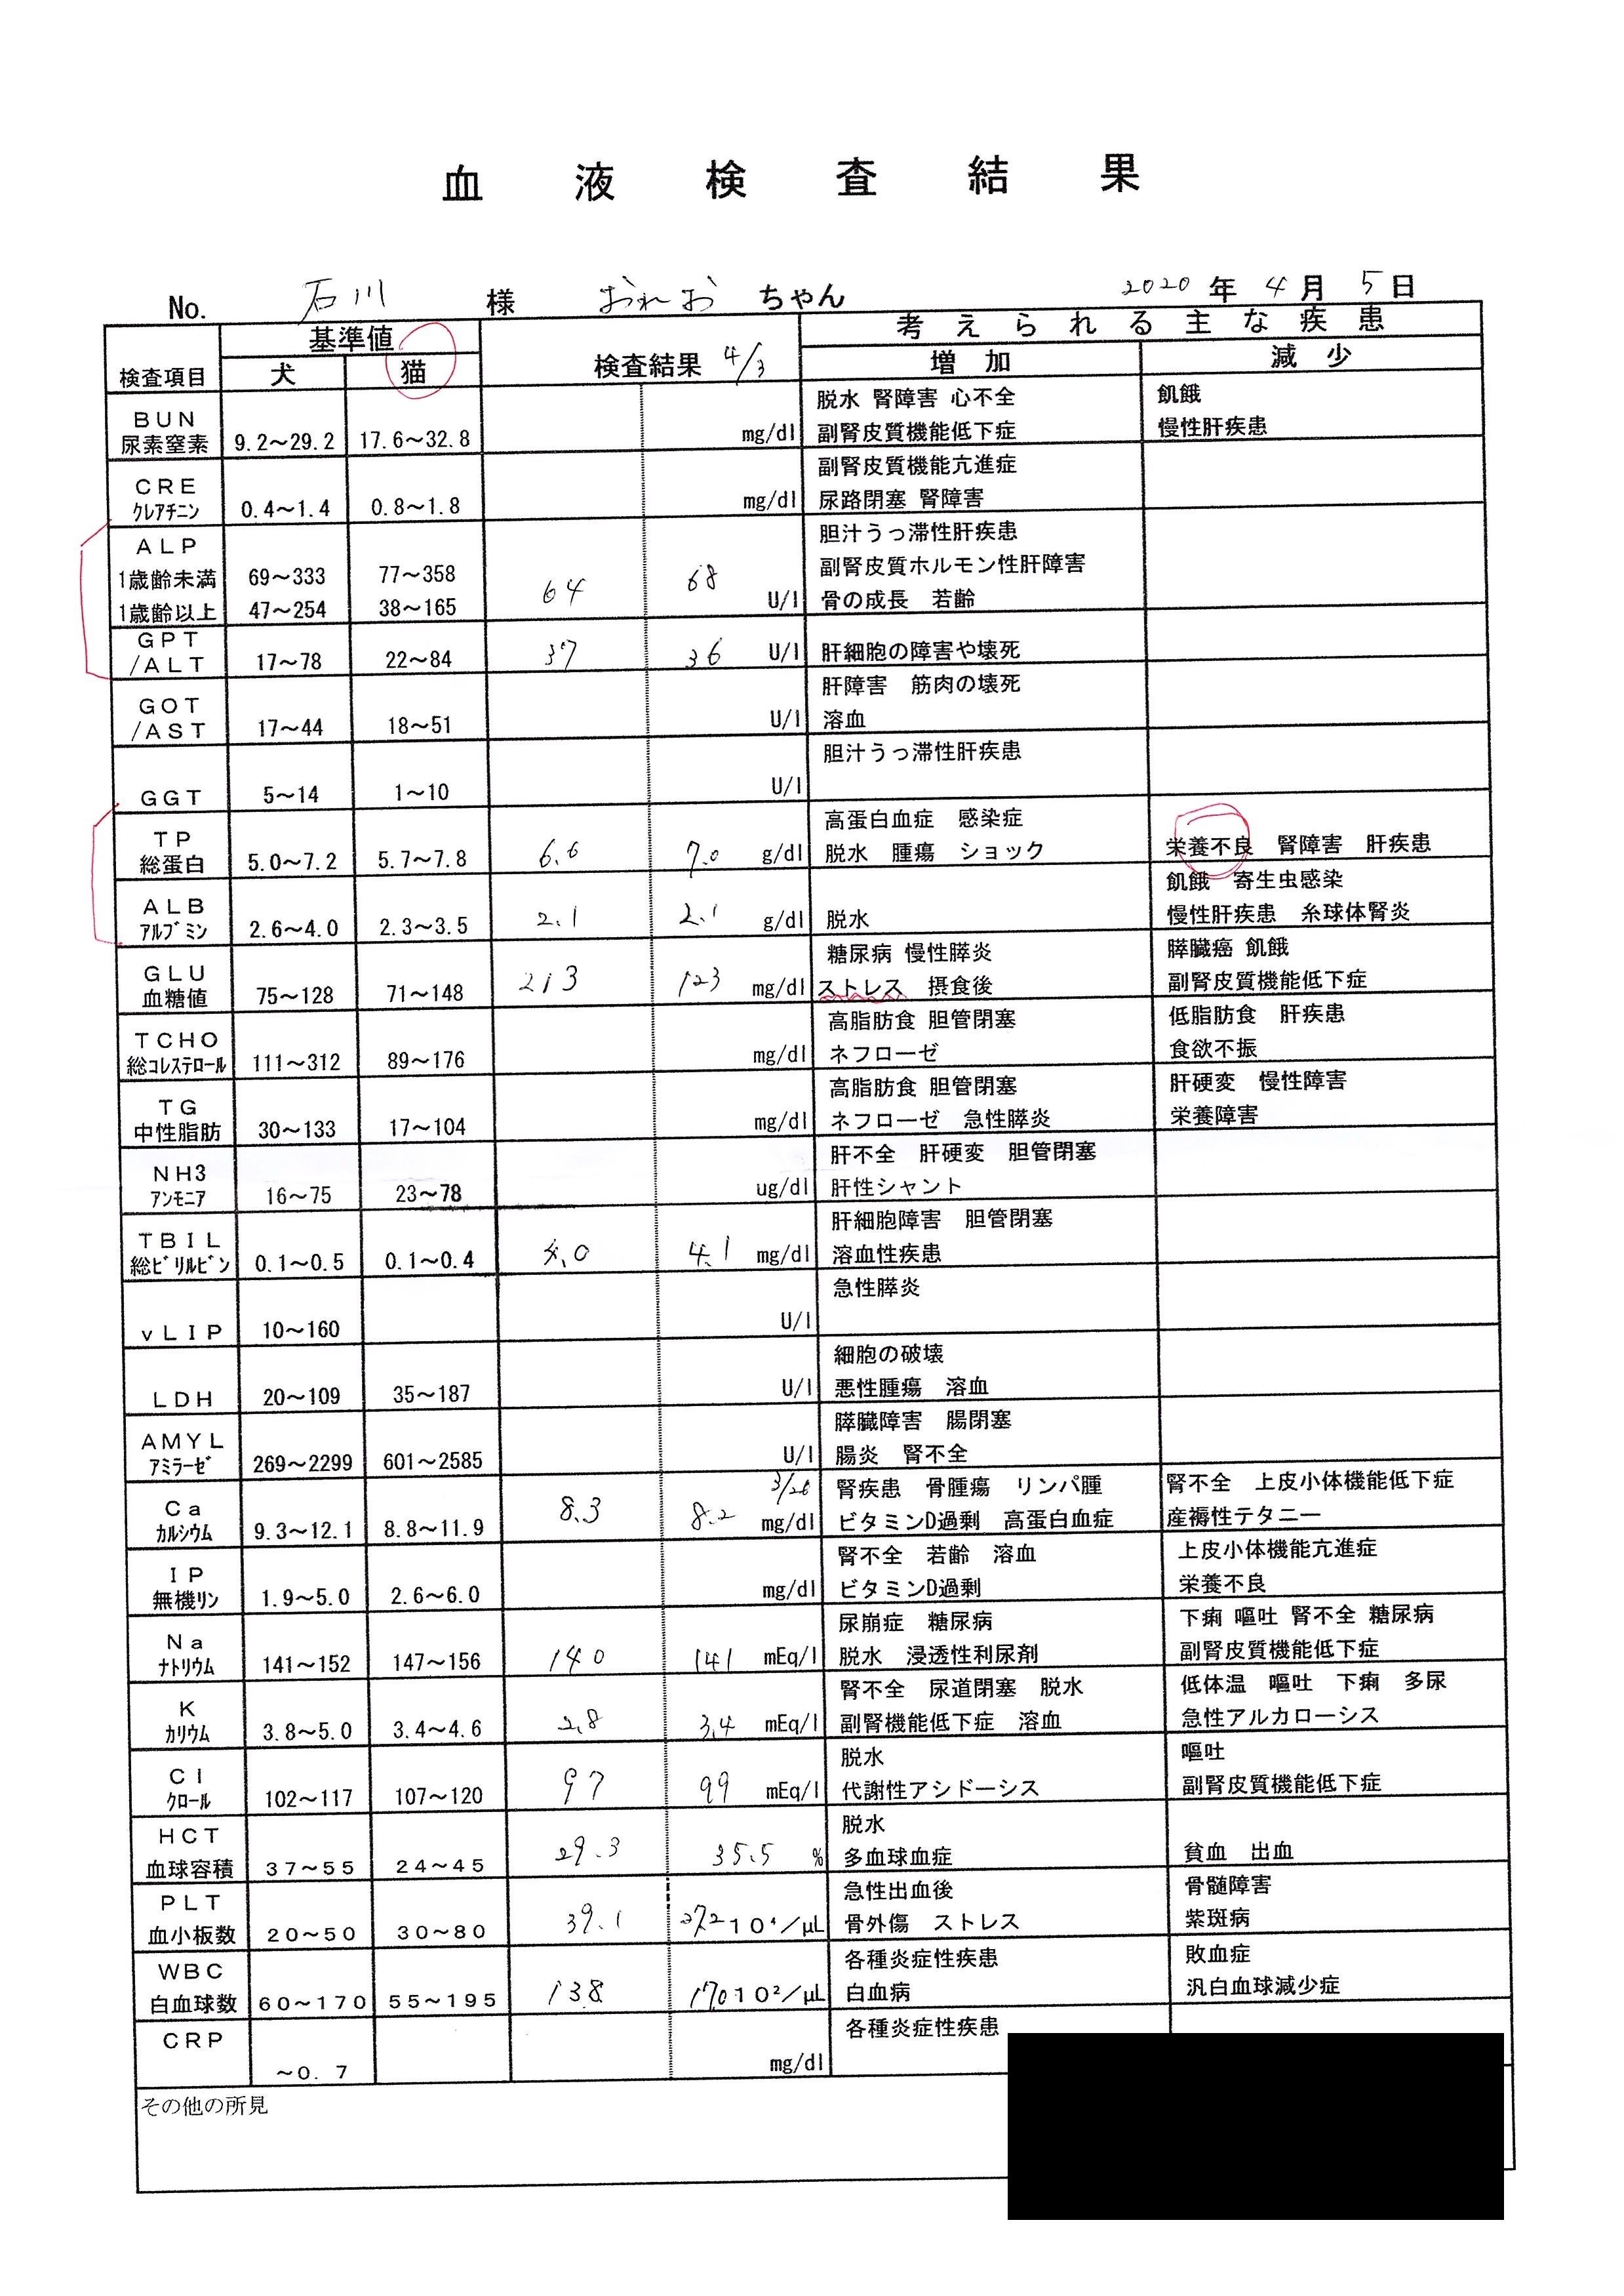 血液検査結果
No. 石川 様 おれお ちゃん 2020 年 4 月 5 日
検査項目 基準値 検査結果 4/3 考えられる主な疾患
犬 猫 増加 減少
BUN 脱水 腎障害 心不全 飢餓
尿素窒素 9.2～29.2 17.6～32.8 mg/dl 副腎皮質機能低下症 慢性肝疾患
CRE 副腎皮質機能亢進症
クレアチニン 0.4～1.4 0.8～1.8 mg/dl 尿路閉塞 腎障害
ALP 胆汁うっ滞性肝疾患
1歳齢未満 69～333 77～358 64 68 副腎皮質ホルモン性肝障害
1歳齢以上 47～254 38～165 U/l 骨の成長 若齢
GPT
/ALT 17～78 22～84 37 36 U/l 肝細胞の障害や壊死
GOT 肝障害 筋肉の壊死
/AST 17～44 18～51 U/l 溶血
胆汁うっ滞性肝疾患
GGT 5～14 1～10 U/l
TP 高蛋白血症 感染症
総蛋白 5.0～7.2 5.7～7.8 6.6 7.0 g/dl 脱水 腫瘍 ショック 栄養不良 腎障害 肝疾患
ALB 飢餓 寄生虫感染
アルブミン 2.6～4.0 2.3～3.5 2.1 2.1 g/dl 脱水 慢性肝疾患 糸球体腎炎
GLU 糖尿病 慢性膵炎 膵臓癌 飢餓
血糖値 75～128 71～148 213 123 mg/dl ストレス 摂食後 副腎皮質機能低下症
TCHO 高脂肪食 胆管閉塞 低脂肪食 肝疾患
総コレステロール 111～312 89～176 mg/dl ネフローゼ 食欲不振
TG 高脂肪食 胆管閉塞 肝硬変 慢性障害
中性脂肪 30～133 17～104 mg/dl ネフローゼ 急性膵炎 栄養障害
NH3 肝不全 肝硬変 胆管閉塞
アンモニア 16～75 23～78 ug/dl 肝性シャント
TBIL 肝細胞障害 胆管閉塞
総ビリルビン 0.1～0.5 0.1～0.4 4.0 4.1 mg/dl 溶血性疾患
急性膵炎
vLIP 10～160 U/l
細胞の破壊
LDH 20～109 35～187 U/l 悪性腫瘍 溶血
AMYL 膵臓障害 腸閉塞
アミラーゼ 269～2299 601～2585 U/l 腸炎 腎不全
Ca 3/28 腎疾患 骨腫瘍 リンパ腫 腎不全 上皮小体機能低下症
カルシウム 9.3～12.1 8.8～11.9 8.3 8.2 mg/dl ビタミンD過剰 高蛋白血症 産褥性テタニー
IP 腎不全 若齢 溶血 上皮小体機能亢進症
無機リン 1.9～5.0 2.6～6.0 mg/dl ビタミンD過剰 栄養不良
Na 尿崩症 糖尿病 下痢 嘔吐 腎不全 糖尿病
ナトリウム 141～152 147～156 140 141 mEq/l 脱水 浸透性利尿剤 副腎皮質機能低下症
K 腎不全 尿道閉塞 脱水 低体温 嘔吐 下痢 多尿
カリウム 3.8～5.0 3.4～4.6 2.8 3.4 mEq/l 副腎機能低下症 溶血 急性アルカローシス
Cl 脱水 嘔吐
クロール 102～117 107～120 97 99 mEq/l 代謝性アシドーシス 副腎皮質機能低下症
HCT 脱水
血球容積 37～55 24～45 29.3 35.5 % 多血球血症 貧血 出血
PLT 急性出血後 骨髄障害
血小板数 20～50 30～80 39.1 10⁴／μL 骨外傷 ストレス 紫斑病
WBC 各種炎症性疾患 敗血症
白血球数 60～170 55～195 138 170 10²／μL 白血病 汎白血球減少症
CRP 各種炎症性疾患
～0.7 mg/dl
その他の所見